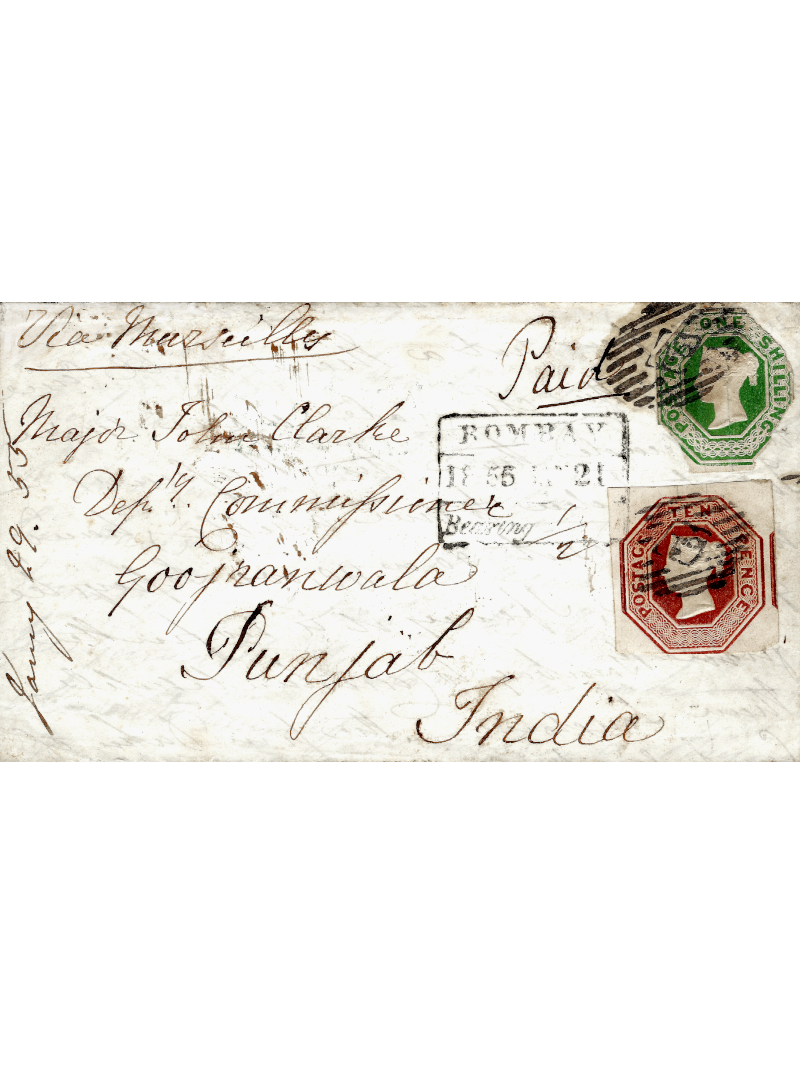 Via Marseilles
Paid
POSTAGE ONE SHILLING
Major John Clarke
BOMBAY
18 55
21
Depty. Commissioner
Bearing
1/2
POSTAGE TEN PENCE
Goojranwala
Punjab
India
29. 55